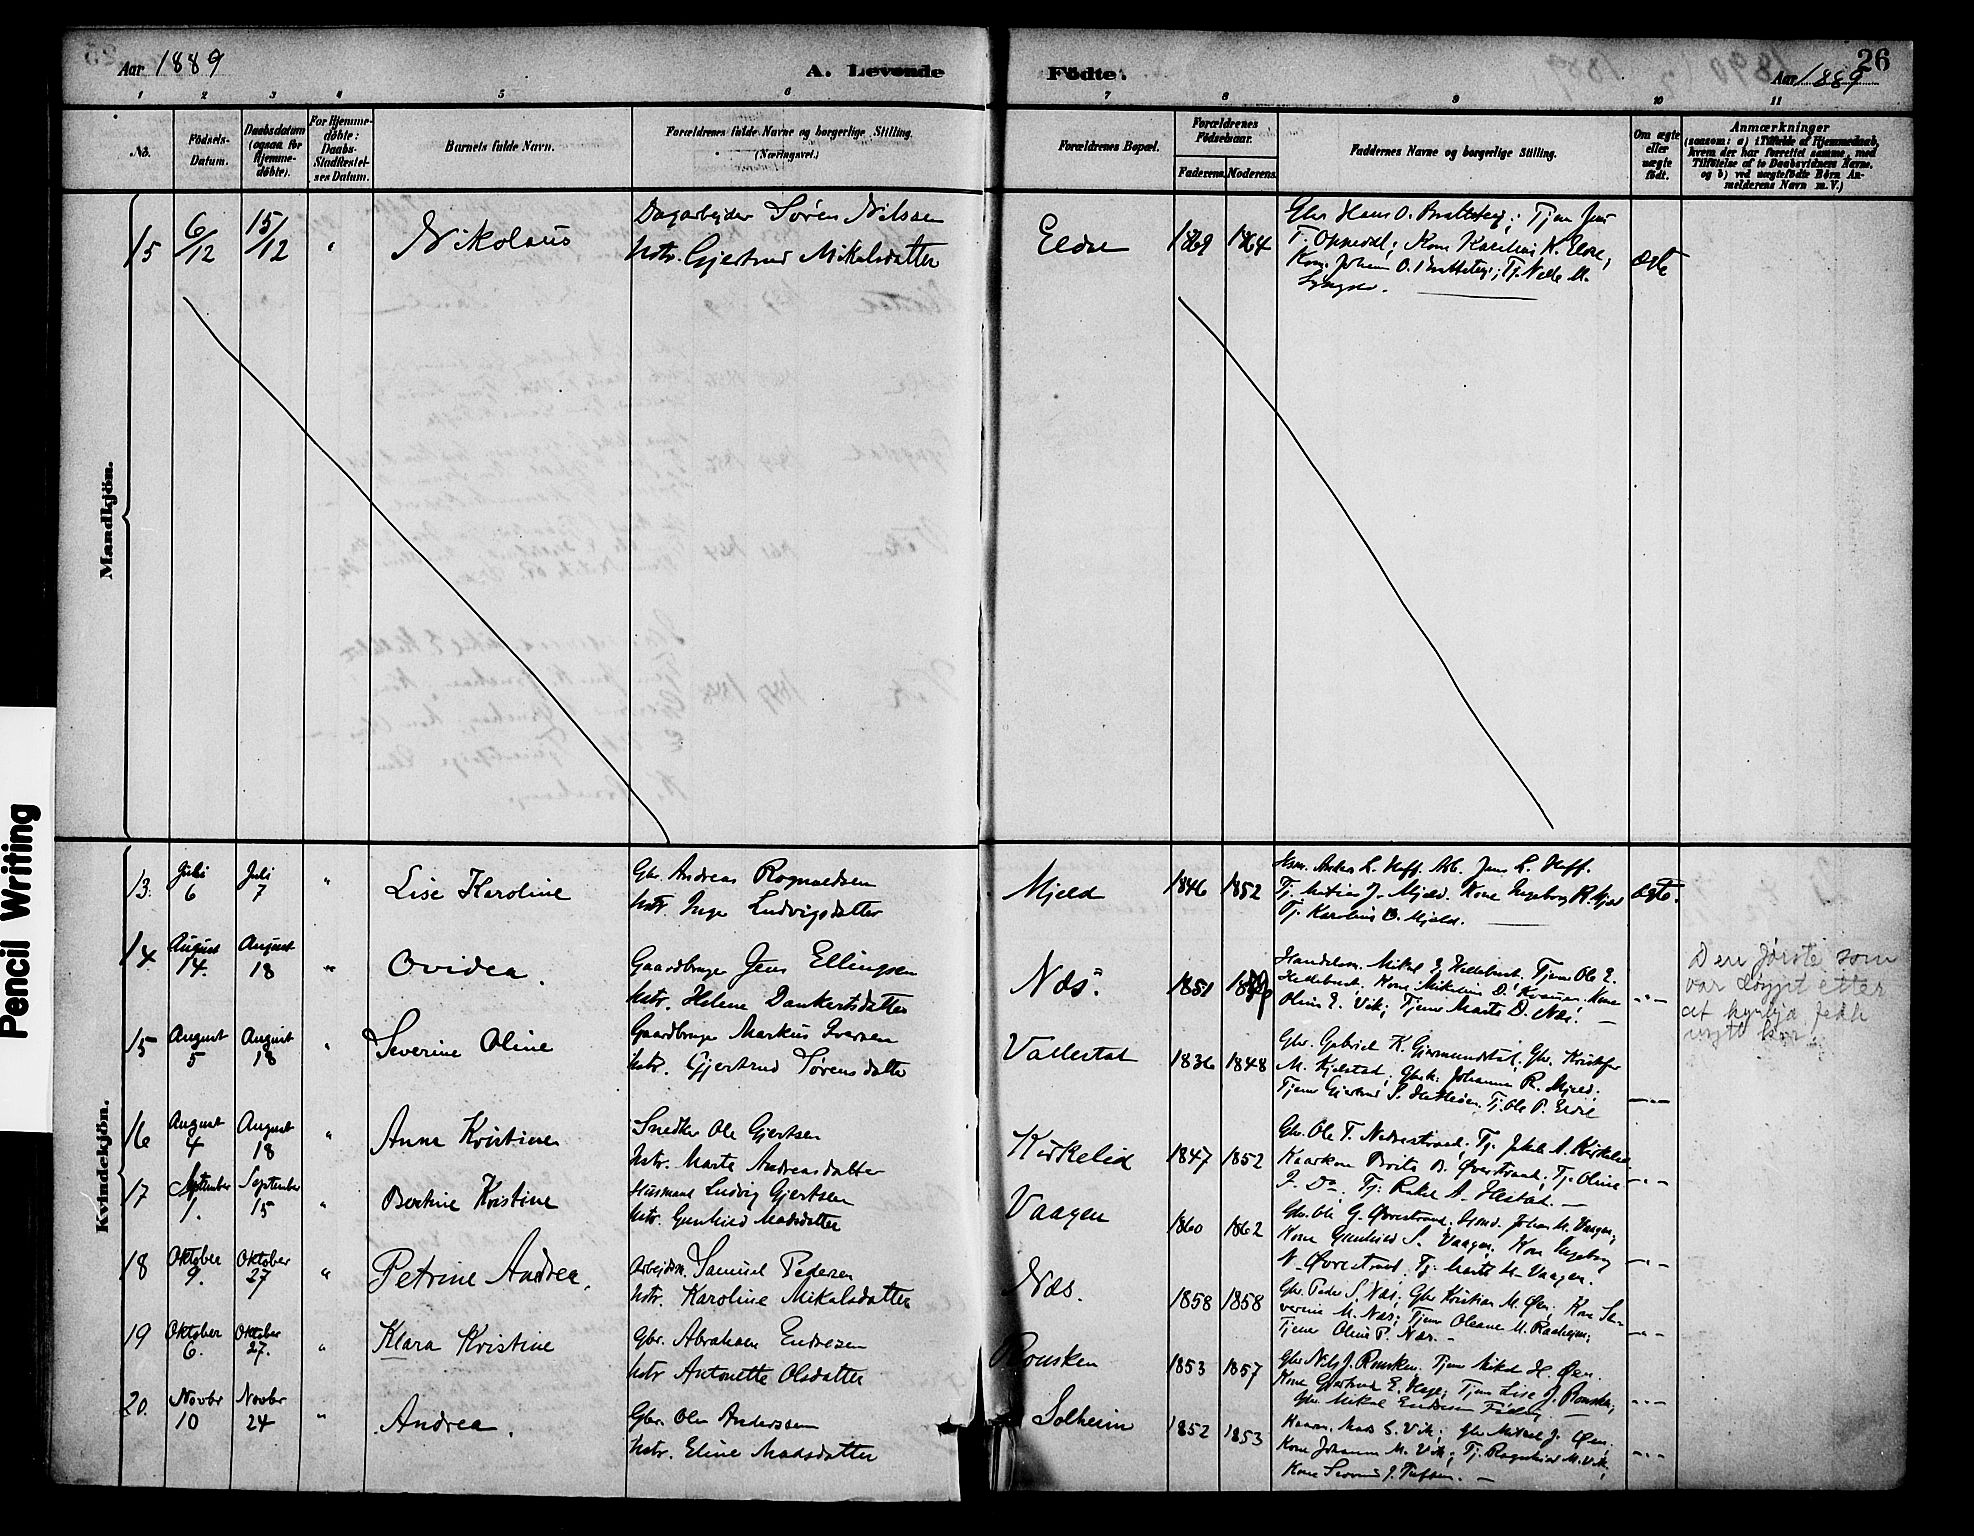 Aar 1889
A. Levende
Födte.
26
Aar 1889
1 2 3 4 5 6 7 8 9 10 11
No.
Födsels-Datum.
Daabsdatum (ogsaa for Hjemme-döbte).
For Hjemme-döbte: Daabs-Stadfæstel-ses Datum.
Barnets fulde Navn.
Forældrenes fulde Navne og borgerlige Stilling. (Næringsvei.)
Forældrenes Bopæl.
Forældrenes Födselsaar.
Faderens. Moderens.
Faddernes Navne og borgerlige Stilling.
Om ægte eller uægte födt.
Anmærkninger
(saasom: a) i Tilfælde af Hjemmedaab, hvem der har forrettet samme, med Tilföielse af to Daabsvidners Navne, og b) ved uægtefödte Börn An-melderens Navn m. V.)
Mandkjön.
15 6/12 15/12 " Nikolaus
Dagarbeider Sören Nilssen
Hstr. Gjertrud Mikalsdatter
Eldre 1869 1864
Gbr Hans O. Brattebeig; Tjen Jens
T. Oppedal; Kone Karolina K. Eldre;
Kone Johanne O. Brattebeig; Tj.
ægte
Kvindekjön.
13. Juli 6 Juli 7 " Lise Karoline
Gbr. Andreas Rognaldsen
Hstr. Inge Ludvigsdatter
Mjeld 1846 1852
Hsm. Anders L. Hoff. Arb. Jens L. Hoff.
Tj. Matias J. Mjeld. Kone Ingeborg R. Mjeld
Tj. Karolius B. Mjeld.
ægte.
14. August 14. August 18 " Ovidea.
Gaardbruger Jens Ellingsen
Hstr. Helene Dankertsdatter
Næs. 1851
Handelsm. Mikal E. Hellebust. Tjener Ole E.
Hellebust. Kone D. Kvamme. Kone
Oline E. Vik; Tjener Marta D. Næs.
"-"
Den første som
var døypt etter
at kyrkja fekk
nytt kor.
15 August 5 August 18 " Severine Oline
Gaardbruger Markus Ivarsen
Hstr. Gjertrud Sörensdatter
Vallestad 1836 1848
Gbr. Gabriel K. Gjermundstad; Gbr. Kristofer
M. Kjelstad; Johanne R. Mjeld;
Tjener Gjertrud S. Tj. Ole P. Eldre
"-"
16 August 4 August 18 " Anna Kristine
Snedker Ole Gjertsen
Hstr. Marta Andreasdatter
Kirkelid 1847 1852
Gbr. Ole T. Nedrestrand; Tj. Jakob A. Kirkelid
Kaarkone Brita B. Øvrestrand; Tj. Oline
J. Do; Tj. Rakel A. Hestad.
"-"
17 September 1. September 15 " Bertine Kristine
Husmand Ludvig Gjertsen
Hstr. Gunhild Madsdatter
Vaagen 1860 1862
Gbr. Ole G. Øvrestrand, Hsmd. Johan M. Vaagen;
Kone Gunhild S. Vaagen; Kone Ingeborg
N. Øvrestrand; Tj. Marta M. Vaagen.
"-"
18 Oktober 9. Oktober 27 " Petrine Andrea.
Arbeidsm. Samuel Pedersen
Hstr. Karoline Mikalsdatter
Næs. 1858 1858
Gbr. Peder S. Næs; Gbr Kristian M. Øen; Kone Se-
verine M. Næs; Tjener Oleane M.
Tjener Oline P. Næs.
"-"
19 Oktober 6. Oktober 27. " Klara Kristine
Gbr. Abraham Endresen
Hstr Antonette Olsdatter
Rønsken 1853 1857
Gbr Nils J. Rønsken. Tjener Mikal H. Øen.
Kone Gjertrud E. Hage; Tjener Lise J. Rønsken;
Gbr. Mikal Endresen
"-"
20. Novbr 10 Novbr 24 " Andrea.
Gbr. Ole Anderssen
Hstr. Eline Madsdatter
Solheim 1852 1853
Kaarm. Mads S. Vik; Gbr Mikael J. Øen;
Kone Johanne M. Vik; Tj. Ragnhild M. Vik;
Kone J. Tufsen.
"-"
Pencil Writing